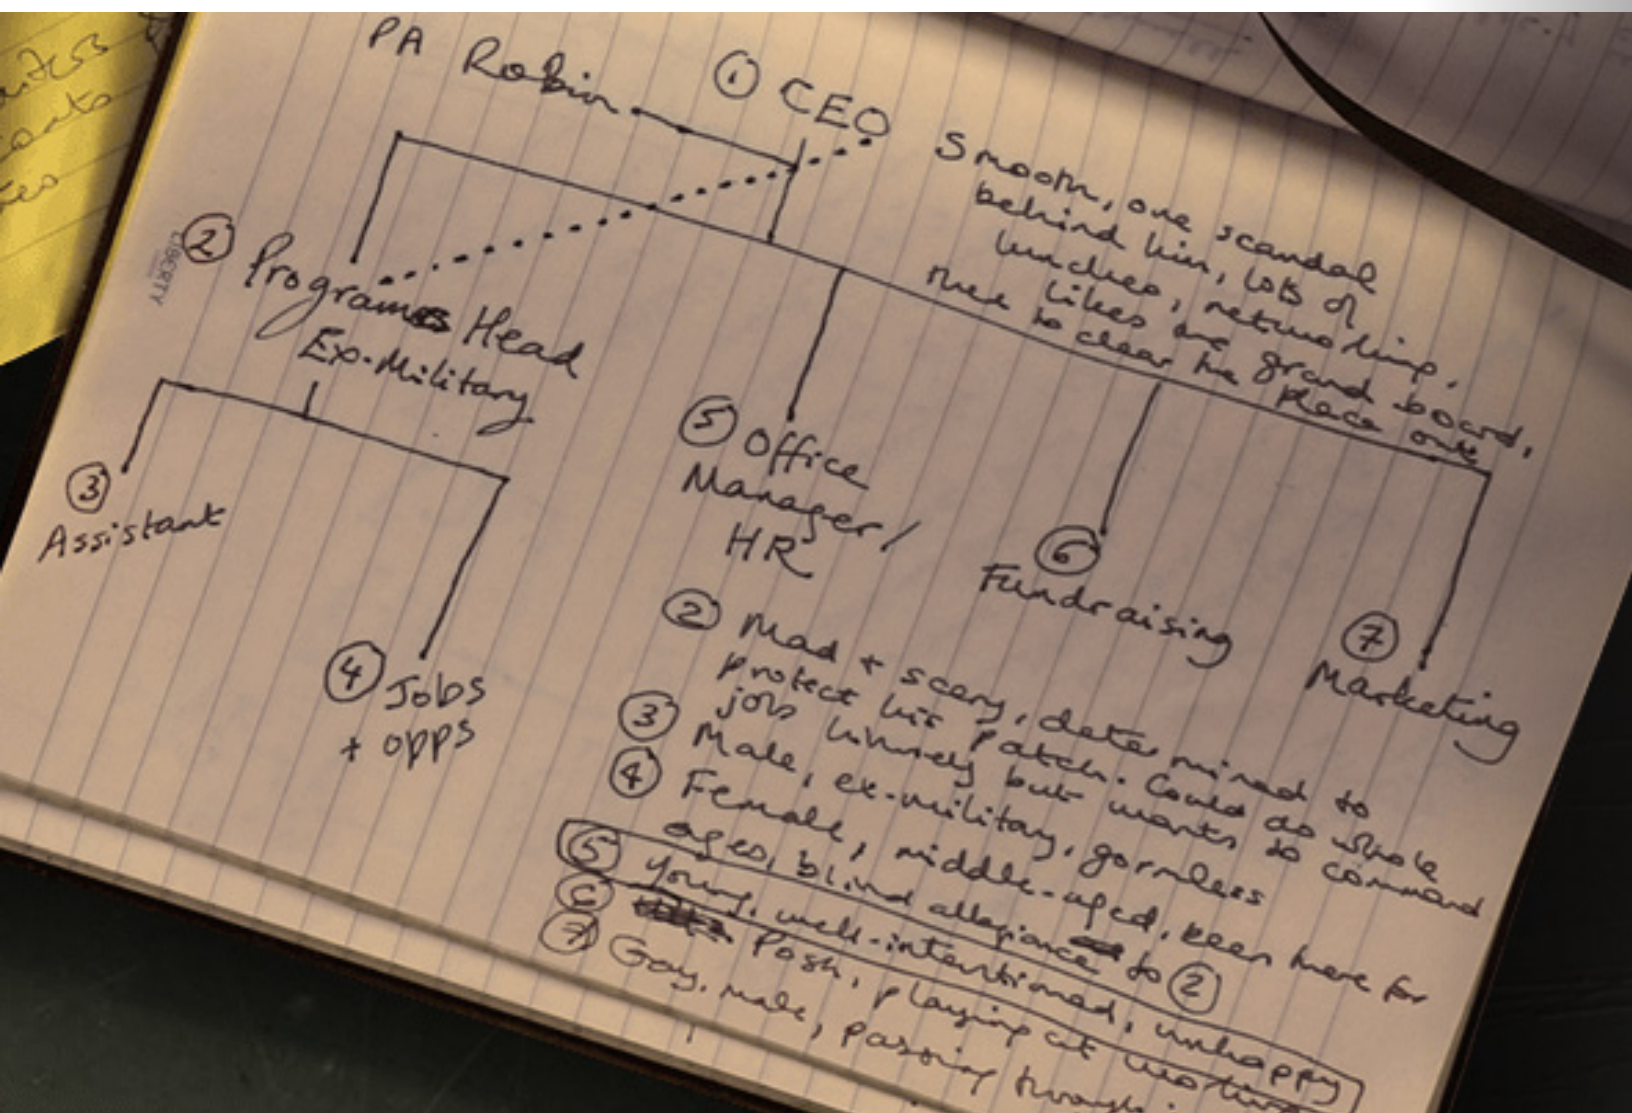 PA Robin
① CEO
Smooth, one scandal
behind him, lots of
lunches, networking.
Likes the grand board,
there to clear the place out
② Programs Head
Ex-Military
LIBERTY
③
Assistant
④ Jobs
+ opps
⑤ Office
Manager /
HR
⑥
Fundraising
⑦
Marketing
② Mad + scary, determined to
protect his patch. Could do whole
job himself but wants to command
③ Male, ex-military, gormless
④ Female, middle-aged, been there for
ages, blind allegiance to ②
⑤ Young, well-intentioned, unhappy
⑥ Posh, playing at
⑦ Gay, male, passing through.